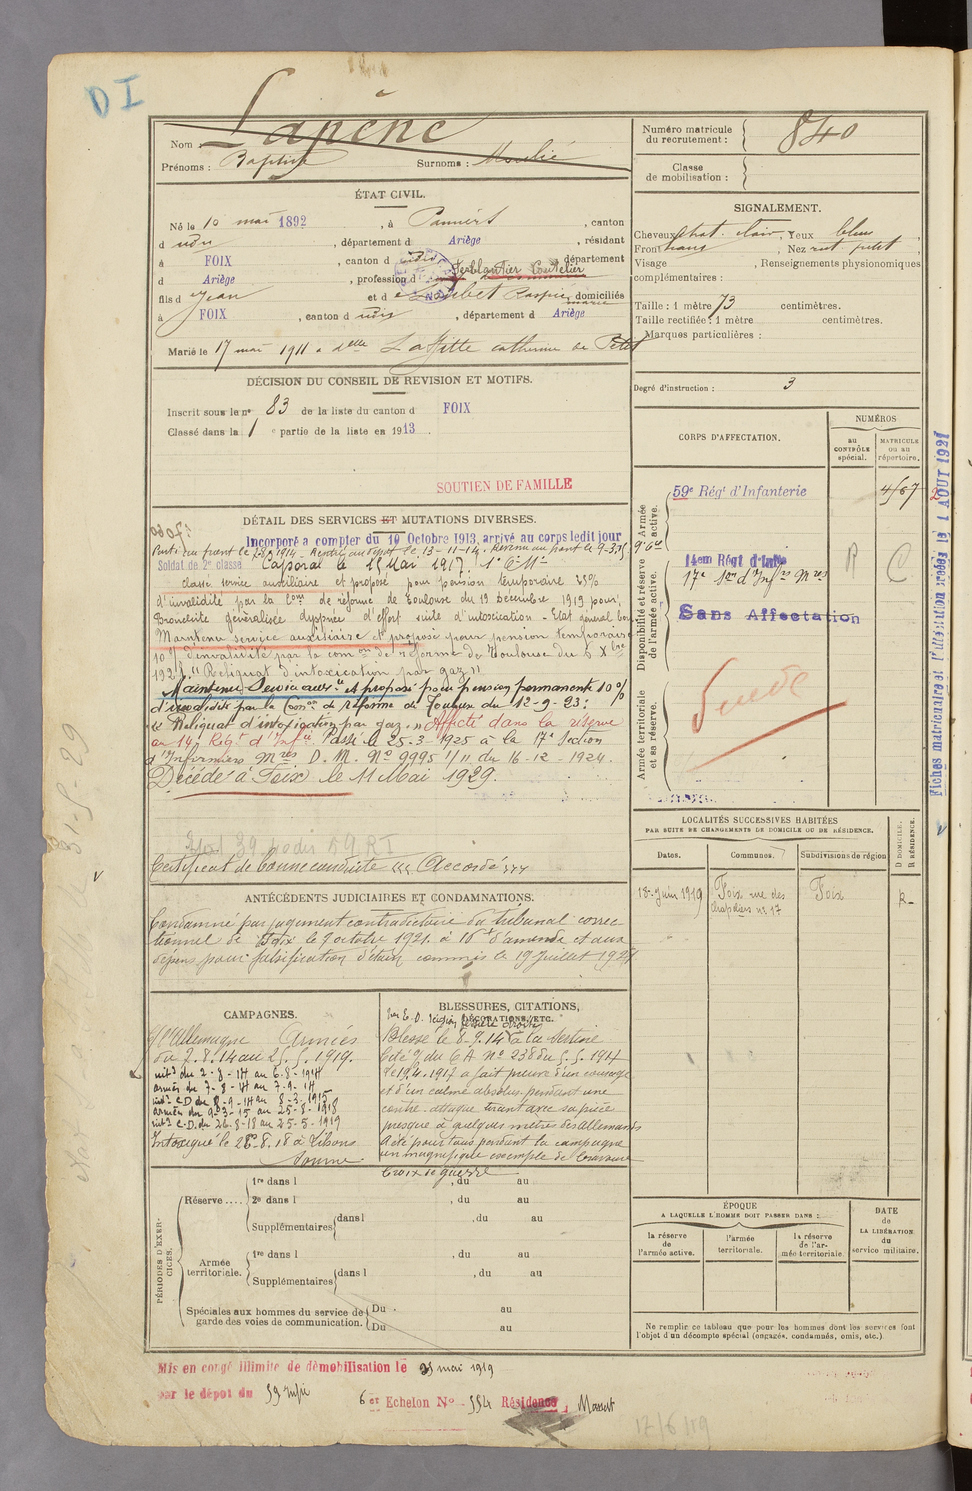 DI
Nom : Lapène
Prénoms : Baptiste Surnoms :
Numéro matricule du recrutement : 840
Classe de mobilisation :
ÉTAT CIVIL.
Né le 10 mai 1892, à Pamiers, canton
d udu, département d Ariège, résidant
à FOIX, canton d udu, département
d Ariège, profession d Ferblantier Coutelier
fils d Jean et d domiciliés
à FOIX, canton d udu, département d Ariège
Marié le 17 mai 1911 à delle Laffitte catherine
SIGNALEMENT.
Cheveux chat. clair, Yeux bleus,
Front ; Nez rect. petit,
Visage , Renseignements physionomiques
complémentaires :
Taille : 1 mètre 73 centimètres.
Taille rectifiée : 1 mètre centimètres.
Marques particulières :
Degré d'instruction : 3
DÉCISION DU CONSEIL DE REVISION ET MOTIFS.
Inscrit sous le nº 83 de la liste du canton d FOIX
Classé dans la 1 e partie de la liste en 1913.
SOUTIEN DE FAMILLE
DÉTAIL DES SERVICES ET MUTATIONS DIVERSES.
Incorporé a compter du 10 Octobre 1913, arrivé au corps ledit jour
Parti au front le 1914 - Rentré au dépôt le 13-11-14. Revenu au front le 9-3.15
Soldat de 2e classe Caporal le 15 Mai 1917. 1e C. Mre
Classé service auxiliaire et proposé pour pension temporaire 25%
d'invalidité par la Com de réforme de Toulouse du 19 Décembre 1919 pour,
Bronchite généralisée dyspnée d'effort suite d'intoxication - Etat général bon
Maintenu service auxiliaire et proposé pour pension temporaire
10% d'invalidité par la com on de réforme de Toulouse du 6 Xbre
192 . "Reliquat d'intoxication par gaz"
Maintenu Service aux re et proposé pour pension permanente 10%
d'invalidité par la Con on de réforme de Toulouse du 12-9-23:
"Reliquat d'intoxication par gaz." Affecté dans la réserve
au 14e Régt d'Infie. Passé le 25-3-1925 à la 17e Section
d'Infirmiers Mres D. M. No 9995 1/11 du 16-12-1924.
Décédé à Foix le 11 Mai 1929.
Certificat de bonne conduite "Accordé"
CORPS D'AFFECTATION.
NUMÉROS
au CONTRÔLE spécial.
MATRICULE ou au répertoire.
Armée active.
59e Régt d'Infanterie
Disponibilité et réserve de l'armée active.
14em Régt d'Infie
17e Son d'Infrs Mres
Sans Affectation
R
C
Armée territoriale et sa réserve.
Fiches matricule et l'affectation créées le 1 AOUT 1921
LOCALITÉS SUCCESSIVES HABITÉES
PAR SUITE DE CHANGEMENTS DE DOMICILE OU DE RÉSIDENCE.
Dates. Communes. Subdivisions de région
D DOMICILE. R RÉSIDENCE.
18-Juin 1919 Foix rue des chapeliers nº 17 Foix R
ANTÉCÉDENTS JUDICIAIRES ET CONDAMNATIONS.
Condamné par jugement contradictoire du tribunal correc-
tionnel de Foix le 7 octobre 1921. à 16f d'amende et aux
dépens pour falsification d'étain commis le 19 Juillet 1921
CAMPAGNES.
C/ l'Allemagne Armées
du 7.8.14 au 25.5.1919.
intr du 2-8-14 au 6-8-1914
armées du 7-8-14 au 7-9-14
intr C.D du 8-9-14 au 8-3-1915
armées du 9-3-15 au 25-8-1918
intr C.D. du 26-8-18 au 25-5-1919
Intoxiqué le 26-8.18 à Lihons
Somme
BLESSURES, CITATIONS, DÉCORATIONS, ETC.
Blessé le 8-9.14
Cité O/ du CA Nº 238 du 5.5.1917
Le 19.4.1917 a fait preuve d'un courage
et d'un calme absolus pendant une
contre-attaque tirant avec sa pièce
presque à quelques mètres des Allemands
A été pour tous pendant la campagne
un magnifique exemple de bravoure
Croix de guerre
PÉRIODES D'EXERCICES.
Réserve.... 1re dans l , du au
2e dans l , du au
Supplémentaires dans l , du au
Armée territoriale. 1re dans l , du au
Supplémentaires dans l , du au
Spéciales aux hommes du service de garde des voies de communication. Du au
Du au
ÉPOQUE
A LAQUELLE L'HOMME DOIT PASSER DANS :
la réserve de l'armée active.
l'armée territoriale.
la réserve de l'armée territoriale.
DATE de LA LIBÉRATION du service militaire.
Ne remplir ce tableau que pour les hommes dont les services font
l'objet d'un décompte spécial (engagés, condamnés, omis, etc.)
Mis en congé illimité de démobilisation le 25 mai 1919
par le dépot du 59 infie 6 et Echelon No 554 Résidence, Massat
17/6/19